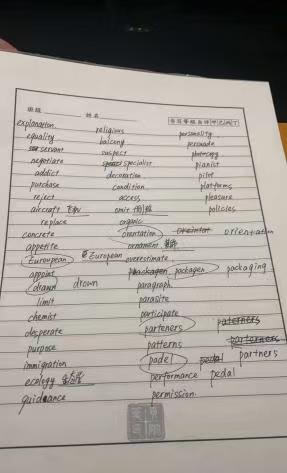 班级 姓名 书写等级自评 甲 乙 丙 丁
explanation religious personality
equality balcony persuade
servant suspect photocopy
negotiate specialist pianist
addict decoration pilot
purchase condition platforms
reject access pleasure
aircraft omit policies
replace organic
concrete orientation orientation
appetite ornament
Eurorpean European overestimate
appoint packagen packaging
drawn drown paragraph
limit parasite
chemist participate
desperate parteners paterners
purpose patterns parterners
immigration padel pedal partners
ecology 生态学 performance pedal
guidance permission